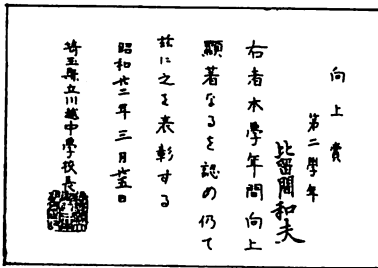 向上賞
第二學年
比留間和夫
右者本學年間向上
顯著なるを認め仍て
玆に之を表彰する
昭和廿二年三月廿五日
埼玉縣立川越中學校長